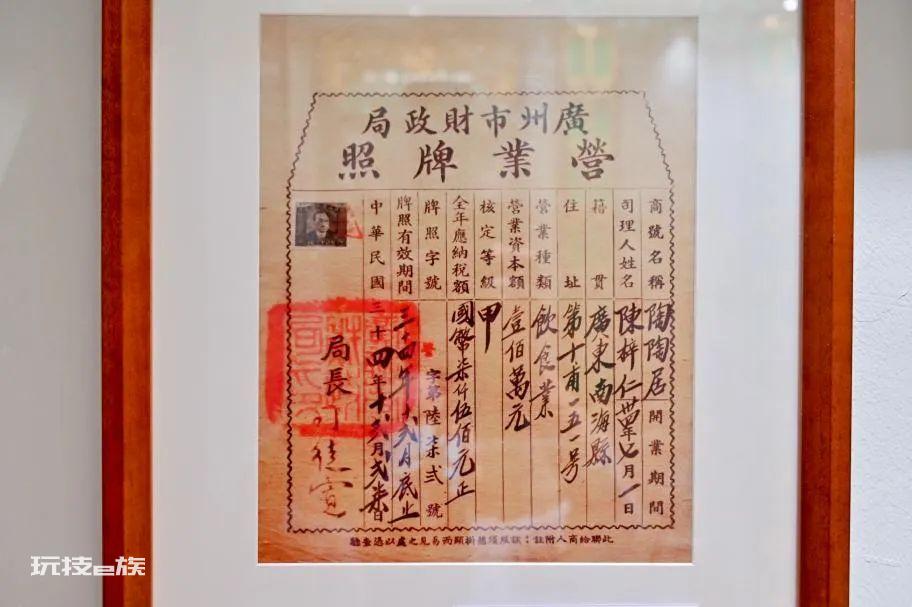 廣州市財政局
營業牌照
商號名稱 陶陶居 開業期間
司理人姓名 陳梓仁 卅四年七月一日
籍貫 廣東南海縣
住址 第十甫一五一号
營業種類 飲食業
營業資本額 壹佰萬元
核定等級 甲
全年應納稅額 國幣柒仟伍佰元正
牌照字號 字第陸柒弍號
牌照有效期間 三十四年十弍月底止
中華民國三十四年十弍月弍柒日
局長
此聯給商人附註：該照須懸掛顯而易見之處以憑查驗
玩技e族